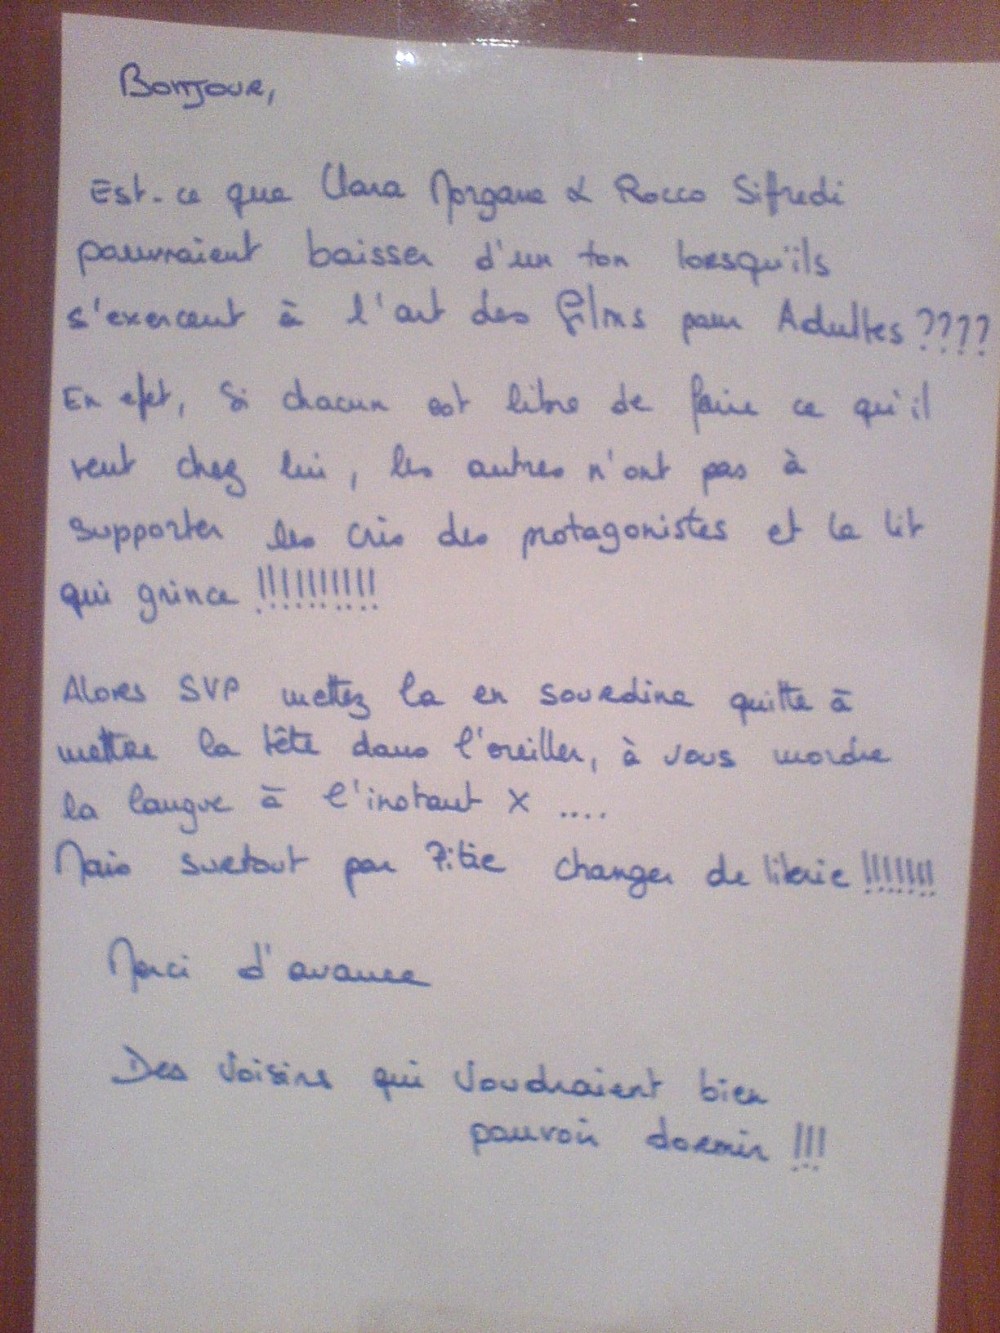 Bonjour,
Est-ce que Clara Morgane & Rocco Sifredi
pourraient baisser d'un ton lorsqu'ils
s'exercent à l'art des films pour Adultes ????
En efet, si chacun est libre de faire ce qu'il
veut chez lui, les autres n'ont pas à
supporter les cris des protagonistes et le lit
qui grince !!!!!!!!!!
Alors SVP mettez la en sourdine quitte à
mettre la tête dans l'oreiller, à vous mordre
la langue à l'instant X ....
Mais surtout par Pitié changer de literie !!!!!!!
Merci d'avance
Des Voisins qui voudraient bien
pouvoir dormir !!!